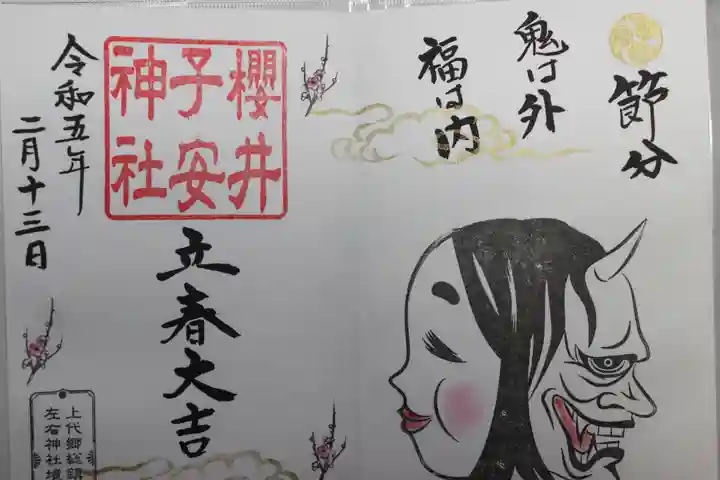 節分
鬼は外
福は内
櫻井
子安
神社
立春大吉
令和五年
二月十三日
上代郷総鎮
左右神社境